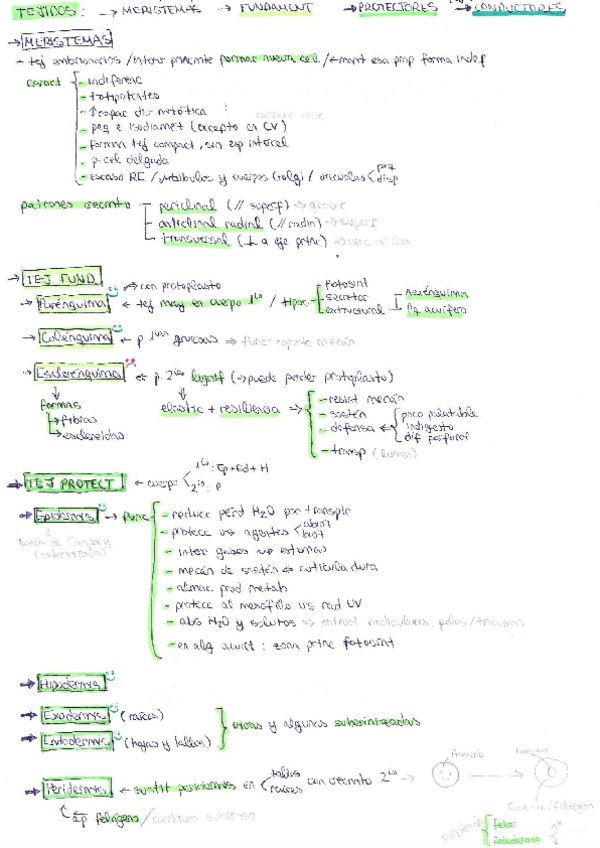 TEJIDOS: → MERISTEMAS → FUNDAMENT → PROTECTORES → CONDUCTORES
→ MERISTEMAS
- tej embrionarios / formar nuevas cel.
caract
- indiferenc
- totipotentes
- ↑ capac div mitótica
- peq e isodiamet (excepto en CV)
- forman tej compact, sin esp intercel
- p. cel delgada
- escaso RE / y cuerpos Golgi / vacuolas < peq disp
patrones crecmto
- periclinal (// superf) ⇒ grosor
- anticlinal radial (// radio) ⇒ superf
- transversal (⊥ a eje princ)
→ TEJ FUND
→ con protoplasto
→ Parénquima ← tej muy en cuerpo 1ario / tipos
- fotosint
- secretor
- estructural
- Aerénquima
- Pq acuífero
→ Colénquima ← p. 1arias gruesas ⇒ func: soporte mecán
→ Esclerénquima ← p. 2ias lignif (→ puede perder protoplasto)
formas
→ fibras
→ esclereidas
elastic + resiliencia ⇒
- resist mecán
- sostén
- defensa ← poco palatable
indigesto
- transp
→ TEJ PROTECT ← cuerpo < 1ario: Ep+Ed+H
2ario: P
→ Epidermis → func
- reduce perd H2O por transpir
- protecc vs agentes < abiót
biót
- inter gases ⇒ estomas
- mecán de sostén ⇔ cutícula dura
- almac prod metab
- protecc al mesófilo vs rad UV
- abs H2O y solutos ⇒ estruct radiculares: pelos / tricomas
- en alg acuát: zona princ fotosint
banda de Caspary
(suberinizada)
→ Hipodermis
→ Exodermis (raíces)
→ Endodermis (hojas y tallos)
y algunas suberinizadas
→ Peridermis ← sustit epidermis en < tallos
raíces
con crecmto 2ario →
felógeno / cambium suberoso
peridermis
felógeno
felodermis